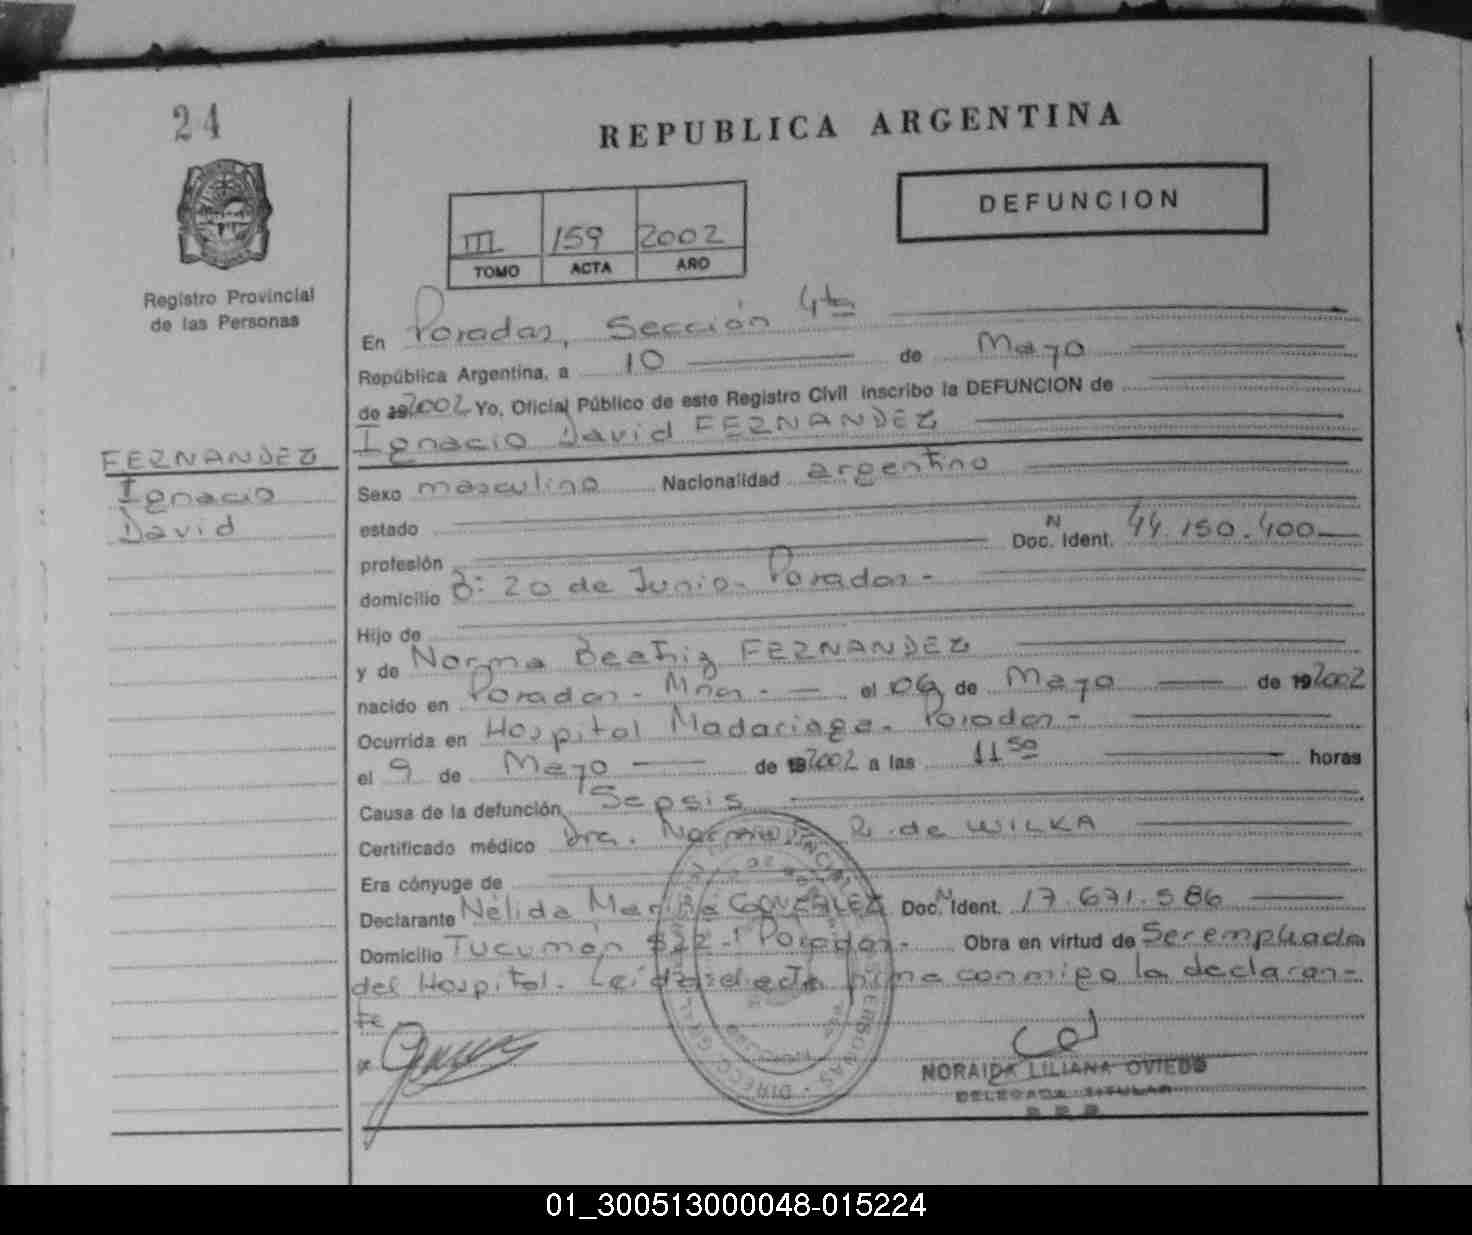 24
REPUBLICA ARGENTINA
DEFUNCION
III 159 2002
TOMO ACTA AÑO
Registro Provincial
de las Personas
En Posadas, Sección 4ta
República Argentina, a 10 de Mayo
de 192002 Yo, Oficial Público de este Registro Civil inscribo la DEFUNCION de
Ignacio David FERNANDEZ
FERNANDEZ
Ignacio
David
Sexo masculino Nacionalidad argentino
estado
N
profesión Doc. Ident. 44.150.400
domicilio B: 20 de Junio. Posadas.-
Hijo de
y de Norma Beatriz FERNANDEZ
nacido en Posadas. Mnes.- el 06 de Mayo de 192002
Ocurrida en Hospital Madariaga. Posadas-
el 9 de Mayo de 192002 a las 11 50 horas
Causa de la defunción Sepsis
Certificado médico Dra. R. de WILKA
Era cónyuge de
Declarante Nélida GONZALEZ Doc. N Ident. 17.671.586
Domicilio Tucumán Posadas.- Obra en virtud de Ser empleada
del Hospital. Leída el acta firma conmigo la declaran-
te
NORAIDA LILIANA OVIEDO
DELEGADA TITULAR
R.P.P.
01_300513000048-015224